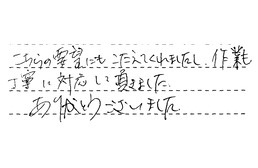 こちらの要望にもこたえてくれましたし、作業も
丁寧に対応して頂きました。
ありがとうございました。